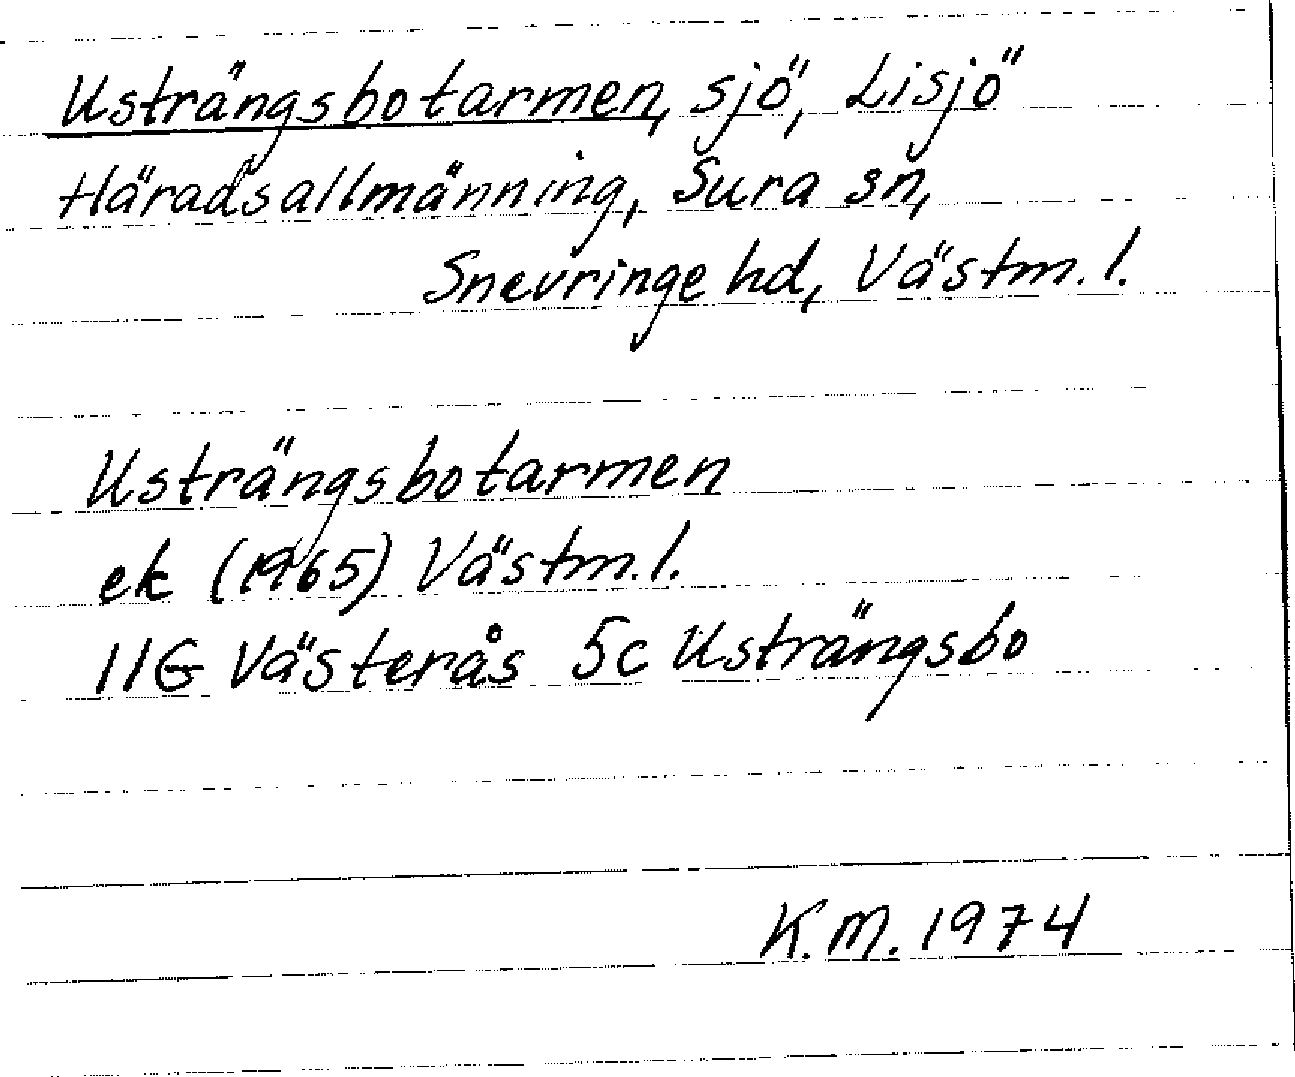 Usträngsbotarmen, sjö, Lisjö
Häradsallmänning, Sura sn,
Snevringe hd, Västm. l.
Usträngsbotarmen
ek (1965) Västm. l.
11G Västerås 5c Usträngsbo
K.M. 1974